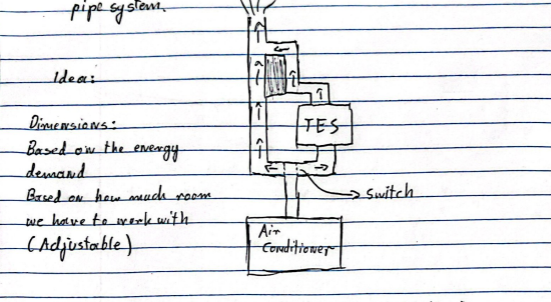 pipe system.
Idea:
TES
Dimensions:
Based on the energy
demand
Based on how much room
we have to work with
(Adjustable)
Switch
Air
Conditioner